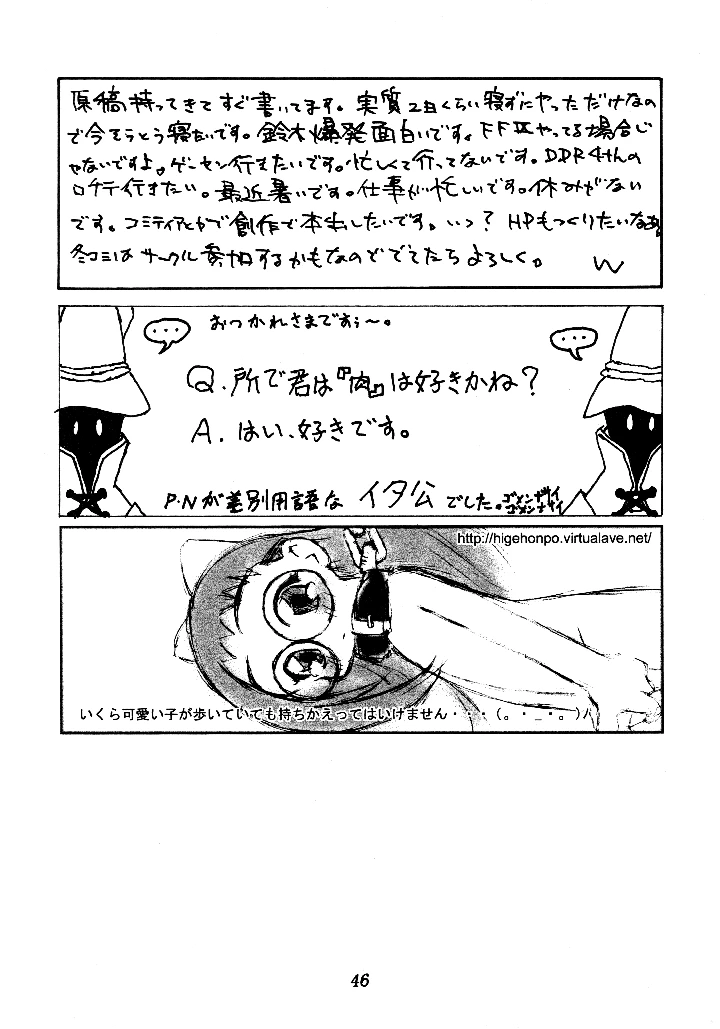 原稿持ってきてすぐ書いてます。実質2日くらい寝ずにやっただけなの
で今そうとう寝たいです。鈴木爆発面白いです。FFⅨやってる場合じ
ゃないですよ。ゲーセン行きたいです。忙しくて行ってないです。DDR4thの
ロケテ行きたい。最近暑いです。仕事が忙しいです。休みがない
です。コミティアとかで創作で本出したいです。いつ？HPもつくりたいなあ。
冬コミはサークル参加するかもなのででてたらよろしく。
...
おつかれさまですぅ〜。
...
Q.所で君は『肉』は好きかね？
A.はい、好きです。
P.Nが差別用語な イタ公 でした。ゴメンナサイ
ゴメンナサイ
http://higehonpo.virtualave.net/
いくら可愛い子が歩いていても持ちかえってはいけません・・・(。・_・。)ﾉ
46